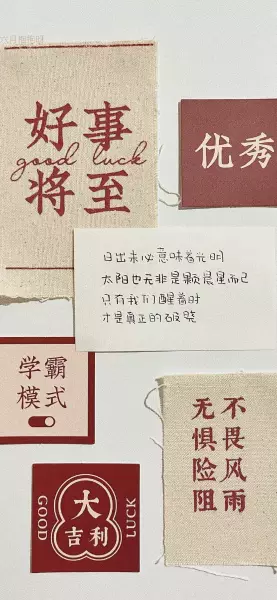 好事
good luck
将至
优秀
日出未必意味着光明
太阳也无非是颗晨星而已
只有我们醒着时
才是真正的破晓
学霸
模式
不畏风雨
无惧险阻
GOOD
大
吉利
LUCK